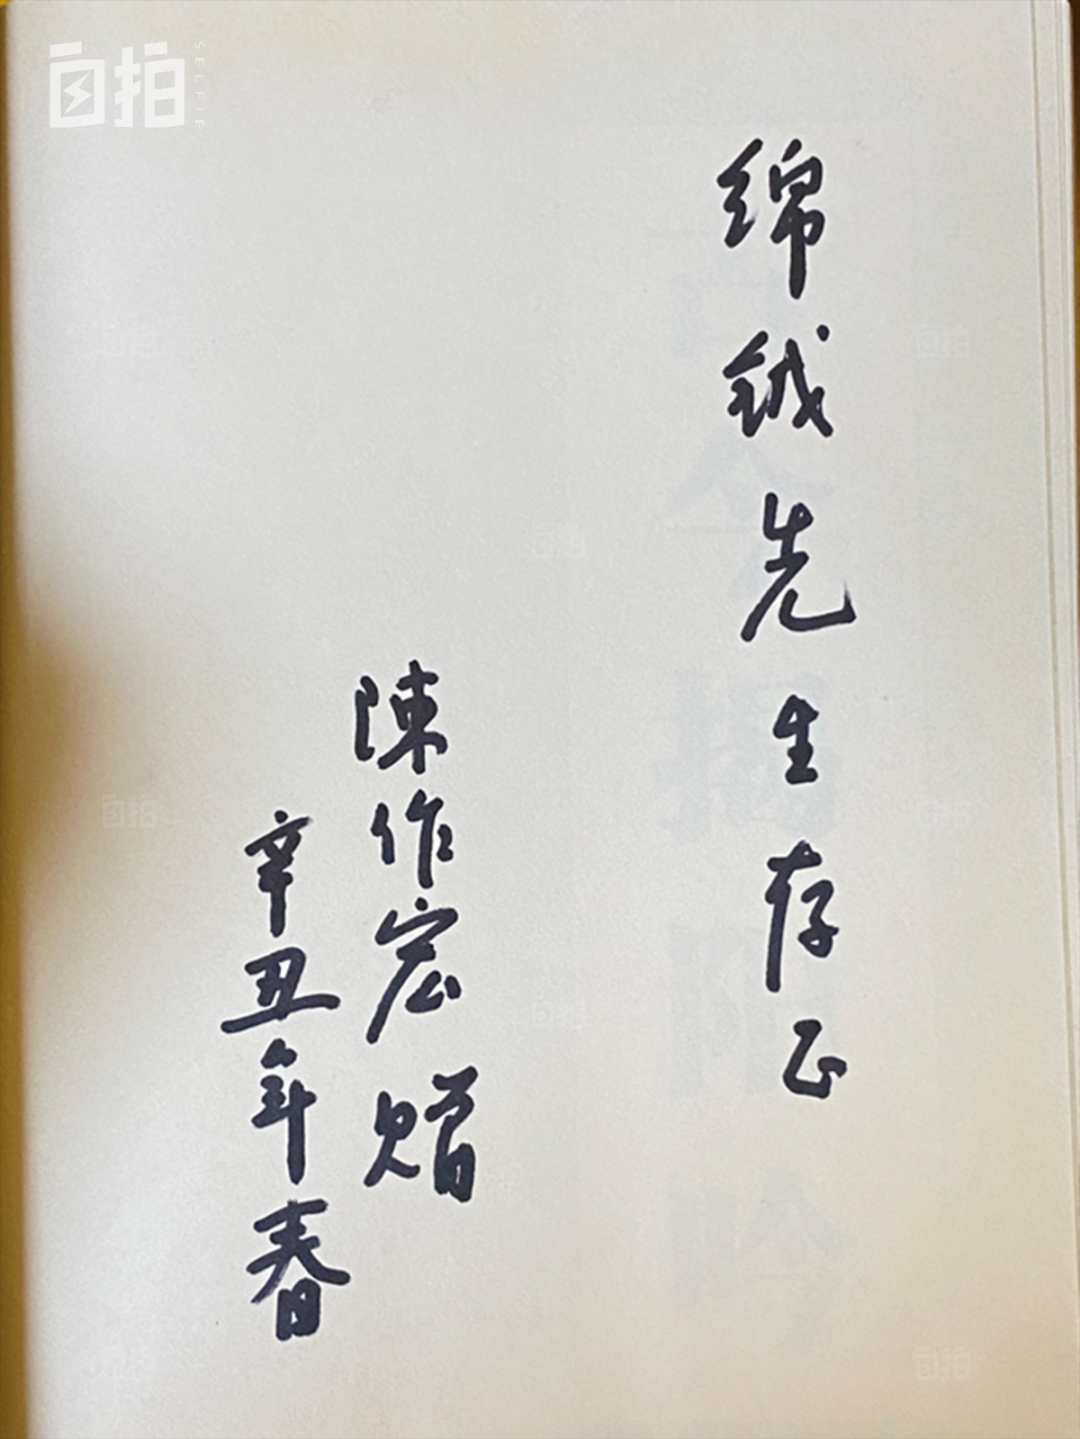 绵铖先生存正
陳作宏赠
辛丑年春
自拍
SELFIE